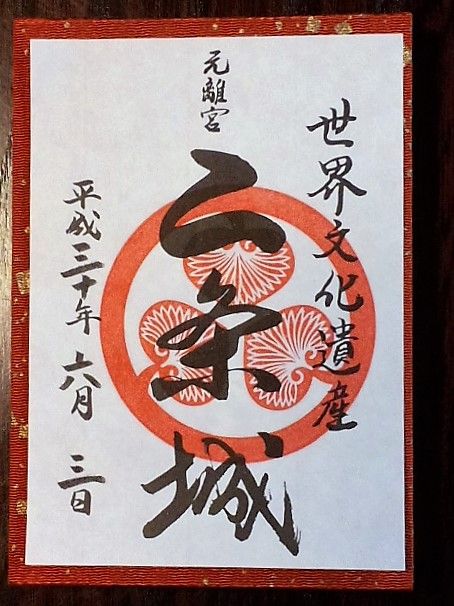 世界文化遺産
元離宮
二条城
平成三十年 六月 三日